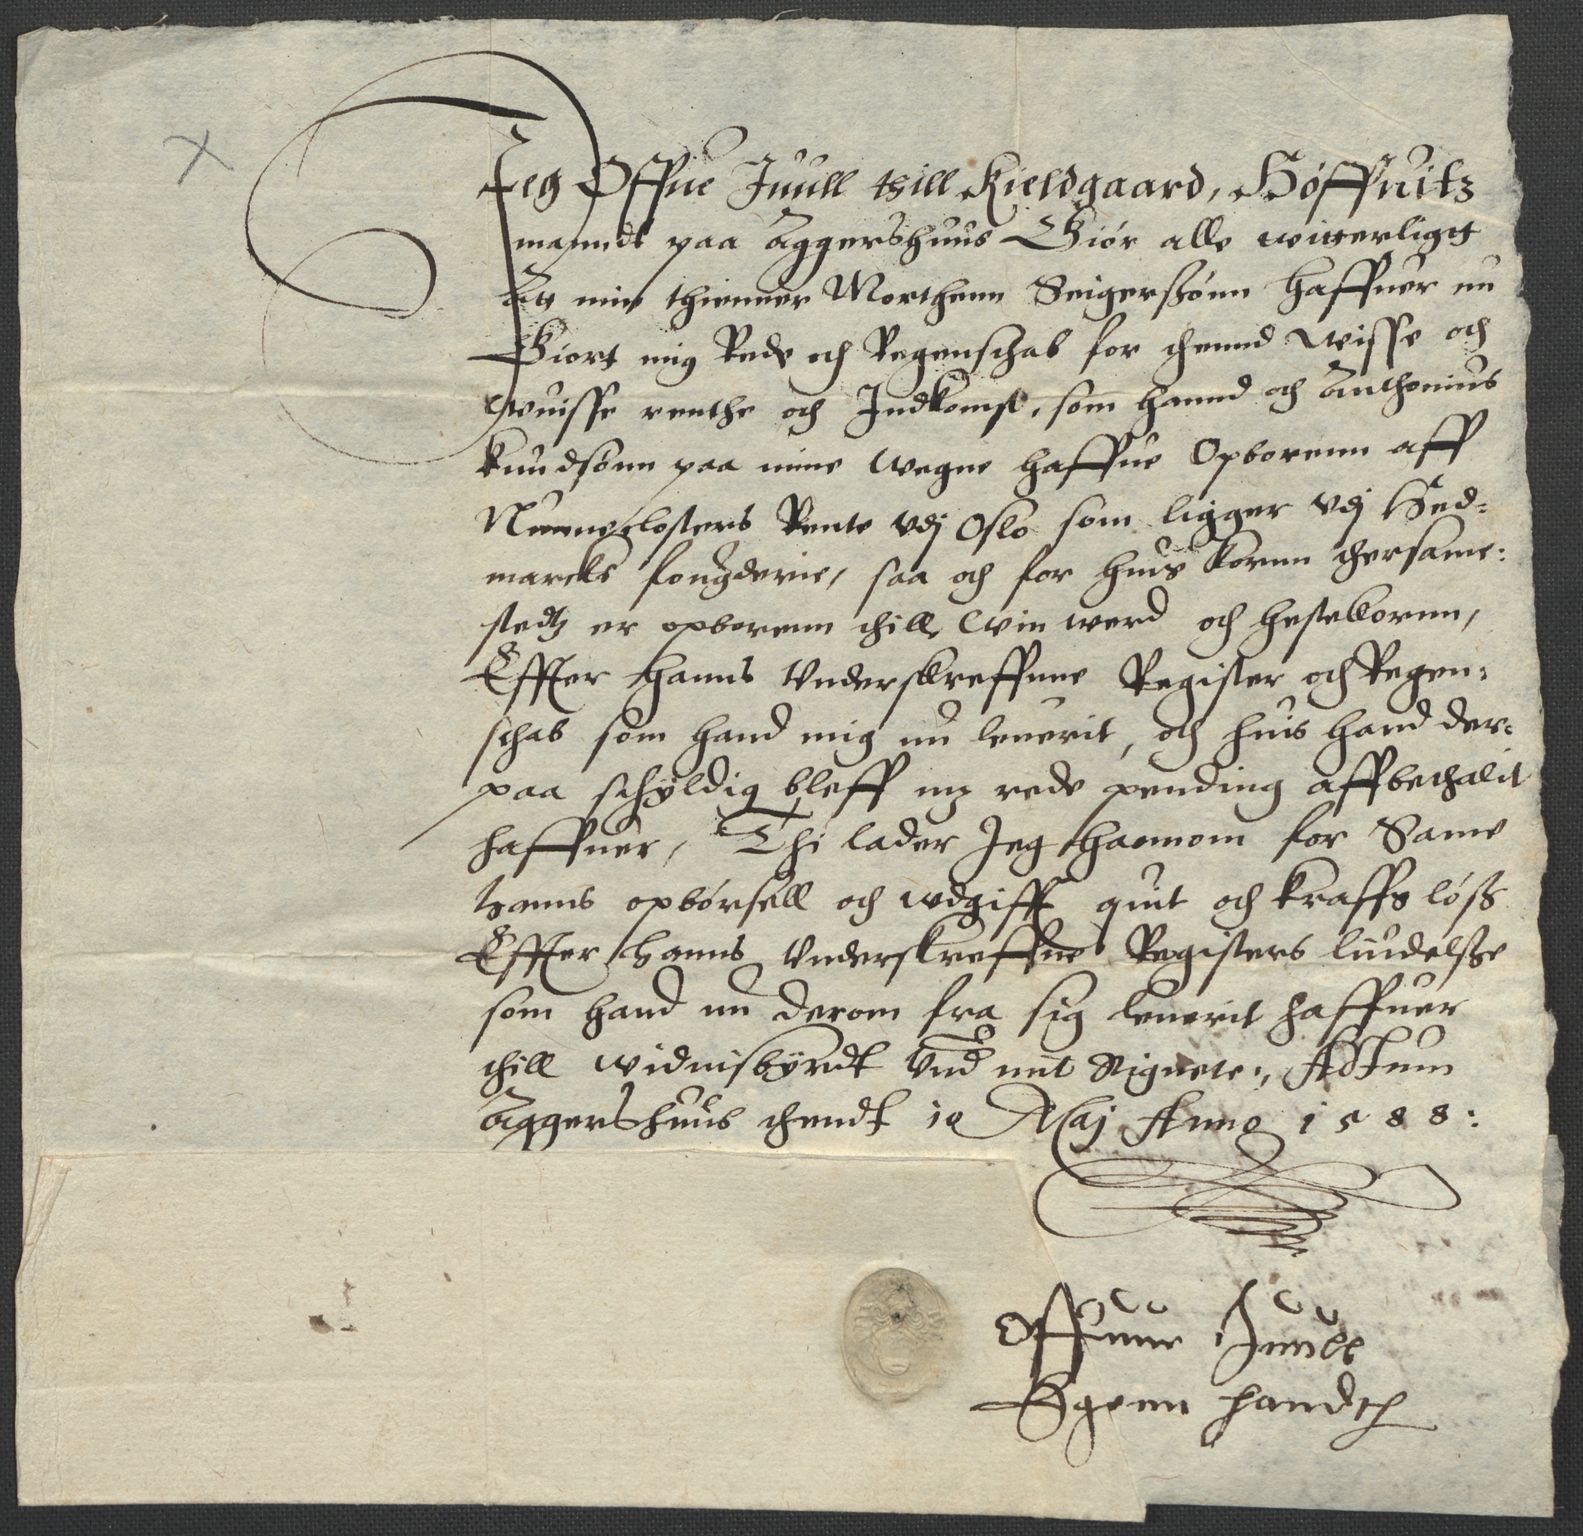 Jeg Offue Juull thill Kieldgaard, Høffuitz
manndt paa Aggershuus Giør alle witterligtt
Att min thienner Morthenn Seigerssønn haffuer nu
Giort mig Rede och Regenschab for thennd wisse och
wuisse renthe och Indkomst, som hannd och Anthonius
knudsønn paa mine wegne haffue Opborenn aff
Nunneclosters Rente vdj Oslo som ligger vdj Hed-
marcks fougderie, saa och for huis kornn thersame-
stedtz er opborenn thill win werd och hestekornn,
Effter hanns Vnderskreffnne Register och Regen-
schab som hand mig nu leuerit, och huis hand der-
paa schyldig bleff mz rede pending affbethalit
haffuer, Thi lader Jeg hannom for Same
hanns opbørsell och wdgifft quit och kraffs løss
Effter hanns Vnderskreffne Registers liudelsse
som hand nu derom fra sig leuerit haffuer
thill widnisbyrdt Vnd mit Signete, Actum
Aggershuus thendt 10 Maj Anno 1588:
Offue Juull
Egenn handt